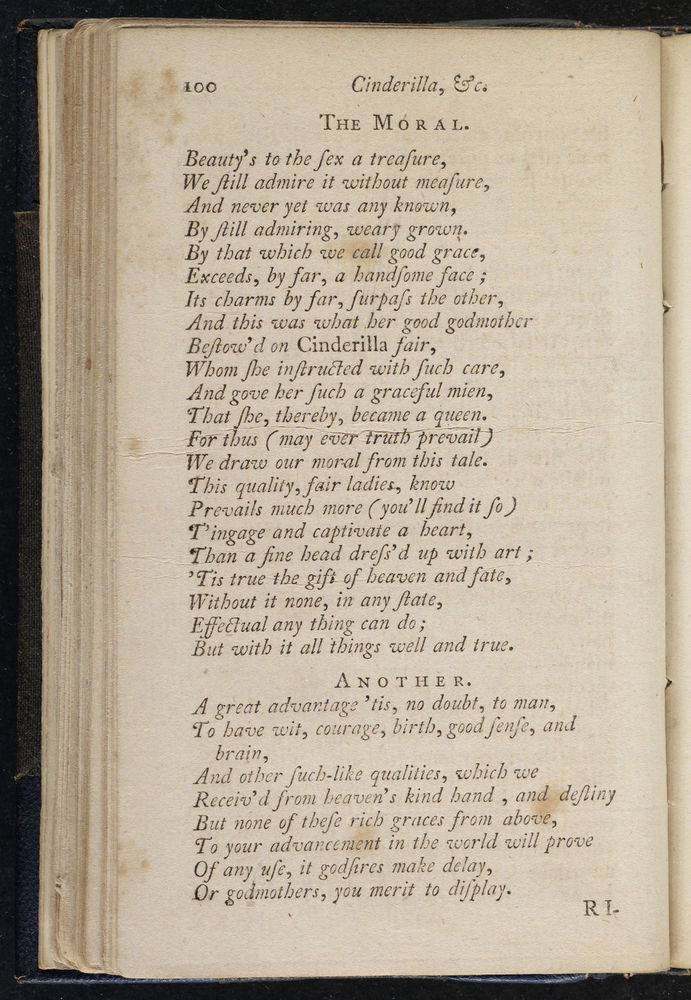 100 Cinderilla, &c.
THE MORAL.
Beauty's to the ſex a treaſure,
We ſtill admire it without meaſure,
And never yet was any known,
By ſtill admiring, weary grown.
By that which we call good grace,
Exceeds, by far, a handſome face ;
Its charms by far, ſurpaſs the other,
And this was what her good godmother
Beſtow'd on Cinderilla fair,
Whom ſhe inſtructed with ſuch care,
And gove her ſuch a graceful mien,
That ſhe, thereby, became a queen.
For thus (may ever truth prevail)
We draw our moral from this tale.
This quality, fair ladies, know
Prevails much more (you'll find it ſo)
T'ingage and captivate a heart,
Than a fine head dreſs'd up with art ;
'Tis true the gift of heaven and fate,
Without it none, in any ſtate,
Effectual any thing can do ;
But with it all things well and true.
ANOTHER.
A great advantage 'tis, no doubt, to man,
To have wit, courage, birth, good ſenſe, and
brain,
And other ſuch-like qualities, which we
Receiv'd from heaven's kind hand , and deſtiny
But none of theſe rich graces from above,
To your advancement in the world will prove
Of any uſe, it godſires make delay,
Or godmothers, you merit to diſplay.
RI-